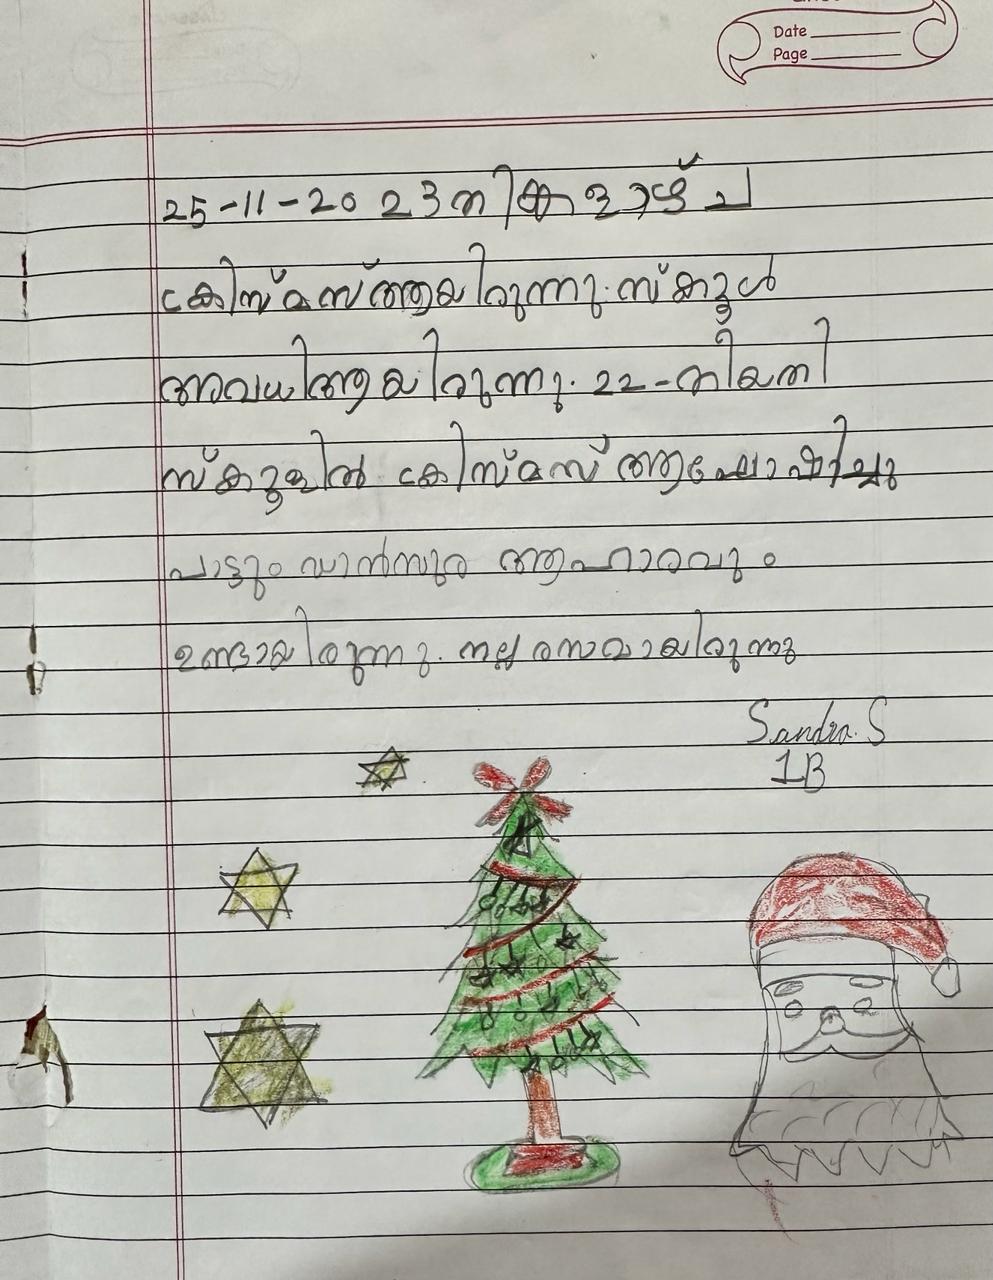 Date
Page
25-11-2023 തിങ്കളാഴ്ച
ക്രിസ്മസ് ആയിരുന്നു. സ്കൂൾ
അവധി ആയിരുന്നു. 22-തിയതി
സ്കൂളിൽ ക്രിസ്മസ് ആഘോഷിച്ചു
പാട്ടും ഡാൻസും ആഹാരവും
ഉണ്ടായിരുന്നു. നല്ല രസമായിരുന്നു
Sandra. S
1B